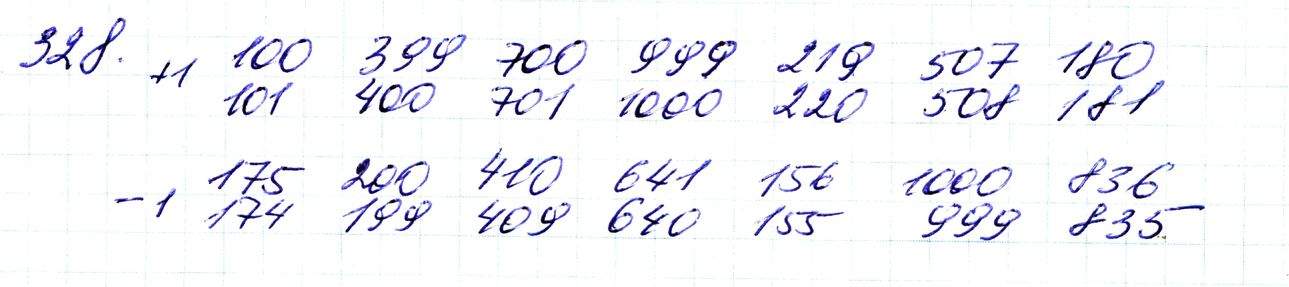 328. +1 100 399 700 999 219 507 180
101 400 701 1000 220 508 181
-1 175 200 410 641 156 1000 836
174 199 409 640 155 999 835